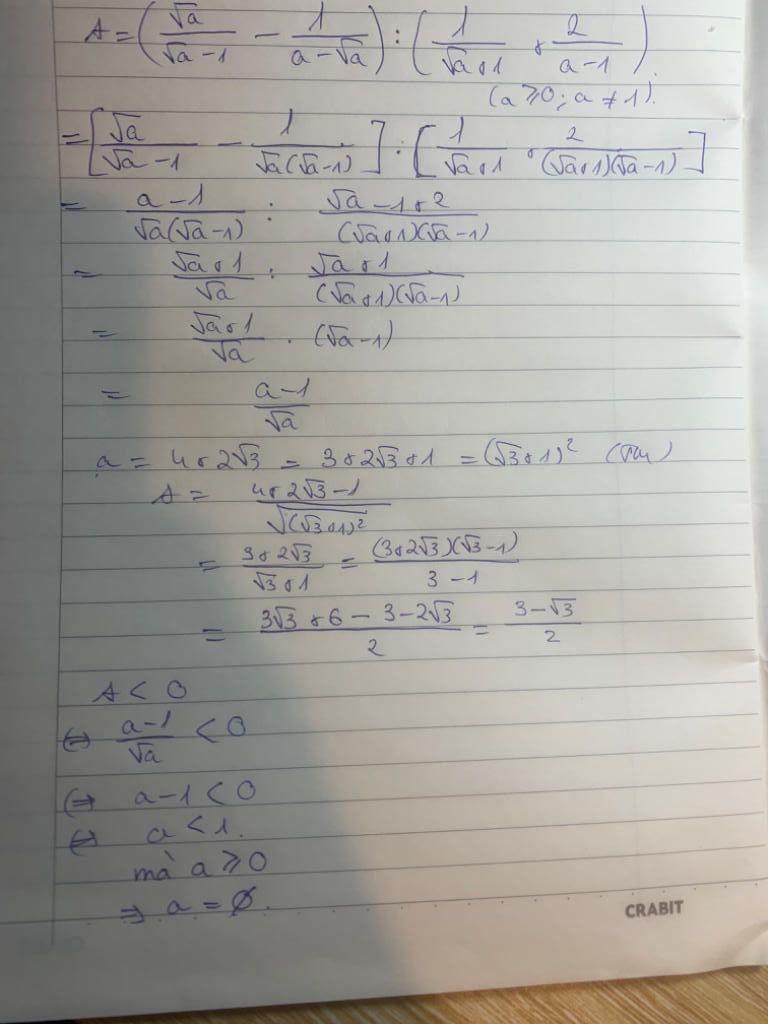 A = (√a/(√a-1) - 1/(a-√a)) : (1/(√a+1) + 2/(a-1)).
(a ≥ 0; a ≠ 1).
= [√a/(√a-1) - 1/(√a(√a-1))] : [1/(√a+1) + 2/((√a+1)(√a-1))]
= (a-1)/(√a(√a-1)) : (√a-1+2)/((√a+1)(√a-1))
= (√a+1)/√a : (√a+1)/((√a+1)(√a-1))
= (√a+1)/√a . (√a-1)
= (a-1)/√a
a = 4+2√3 = 3+2√3+1 = (√3+1)²
A = (4+2√3-1)/√((√3+1)²)
= (3+2√3)/(√3+1) = (3+2√3)(√3-1)/(3-1)
= (3√3+6-3-2√3)/2 = (3-√3)/2
A < 0
⇔ (a-1)/√a < 0
⇔ a-1 < 0
⇔ a < 1.
mà a ≥ 0
⇒ a = ∅.
CRABIT